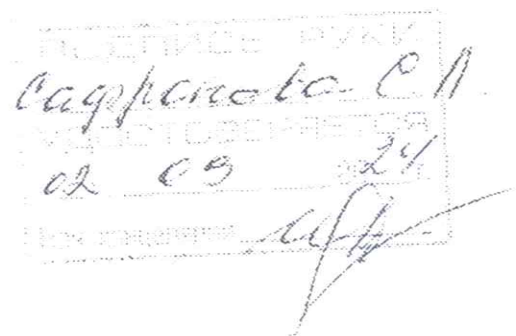 ПОДПИСЬ РУКИ
Сафронова С Л
УДОСТОВЕРЯЕТСЯ
02 09 2024